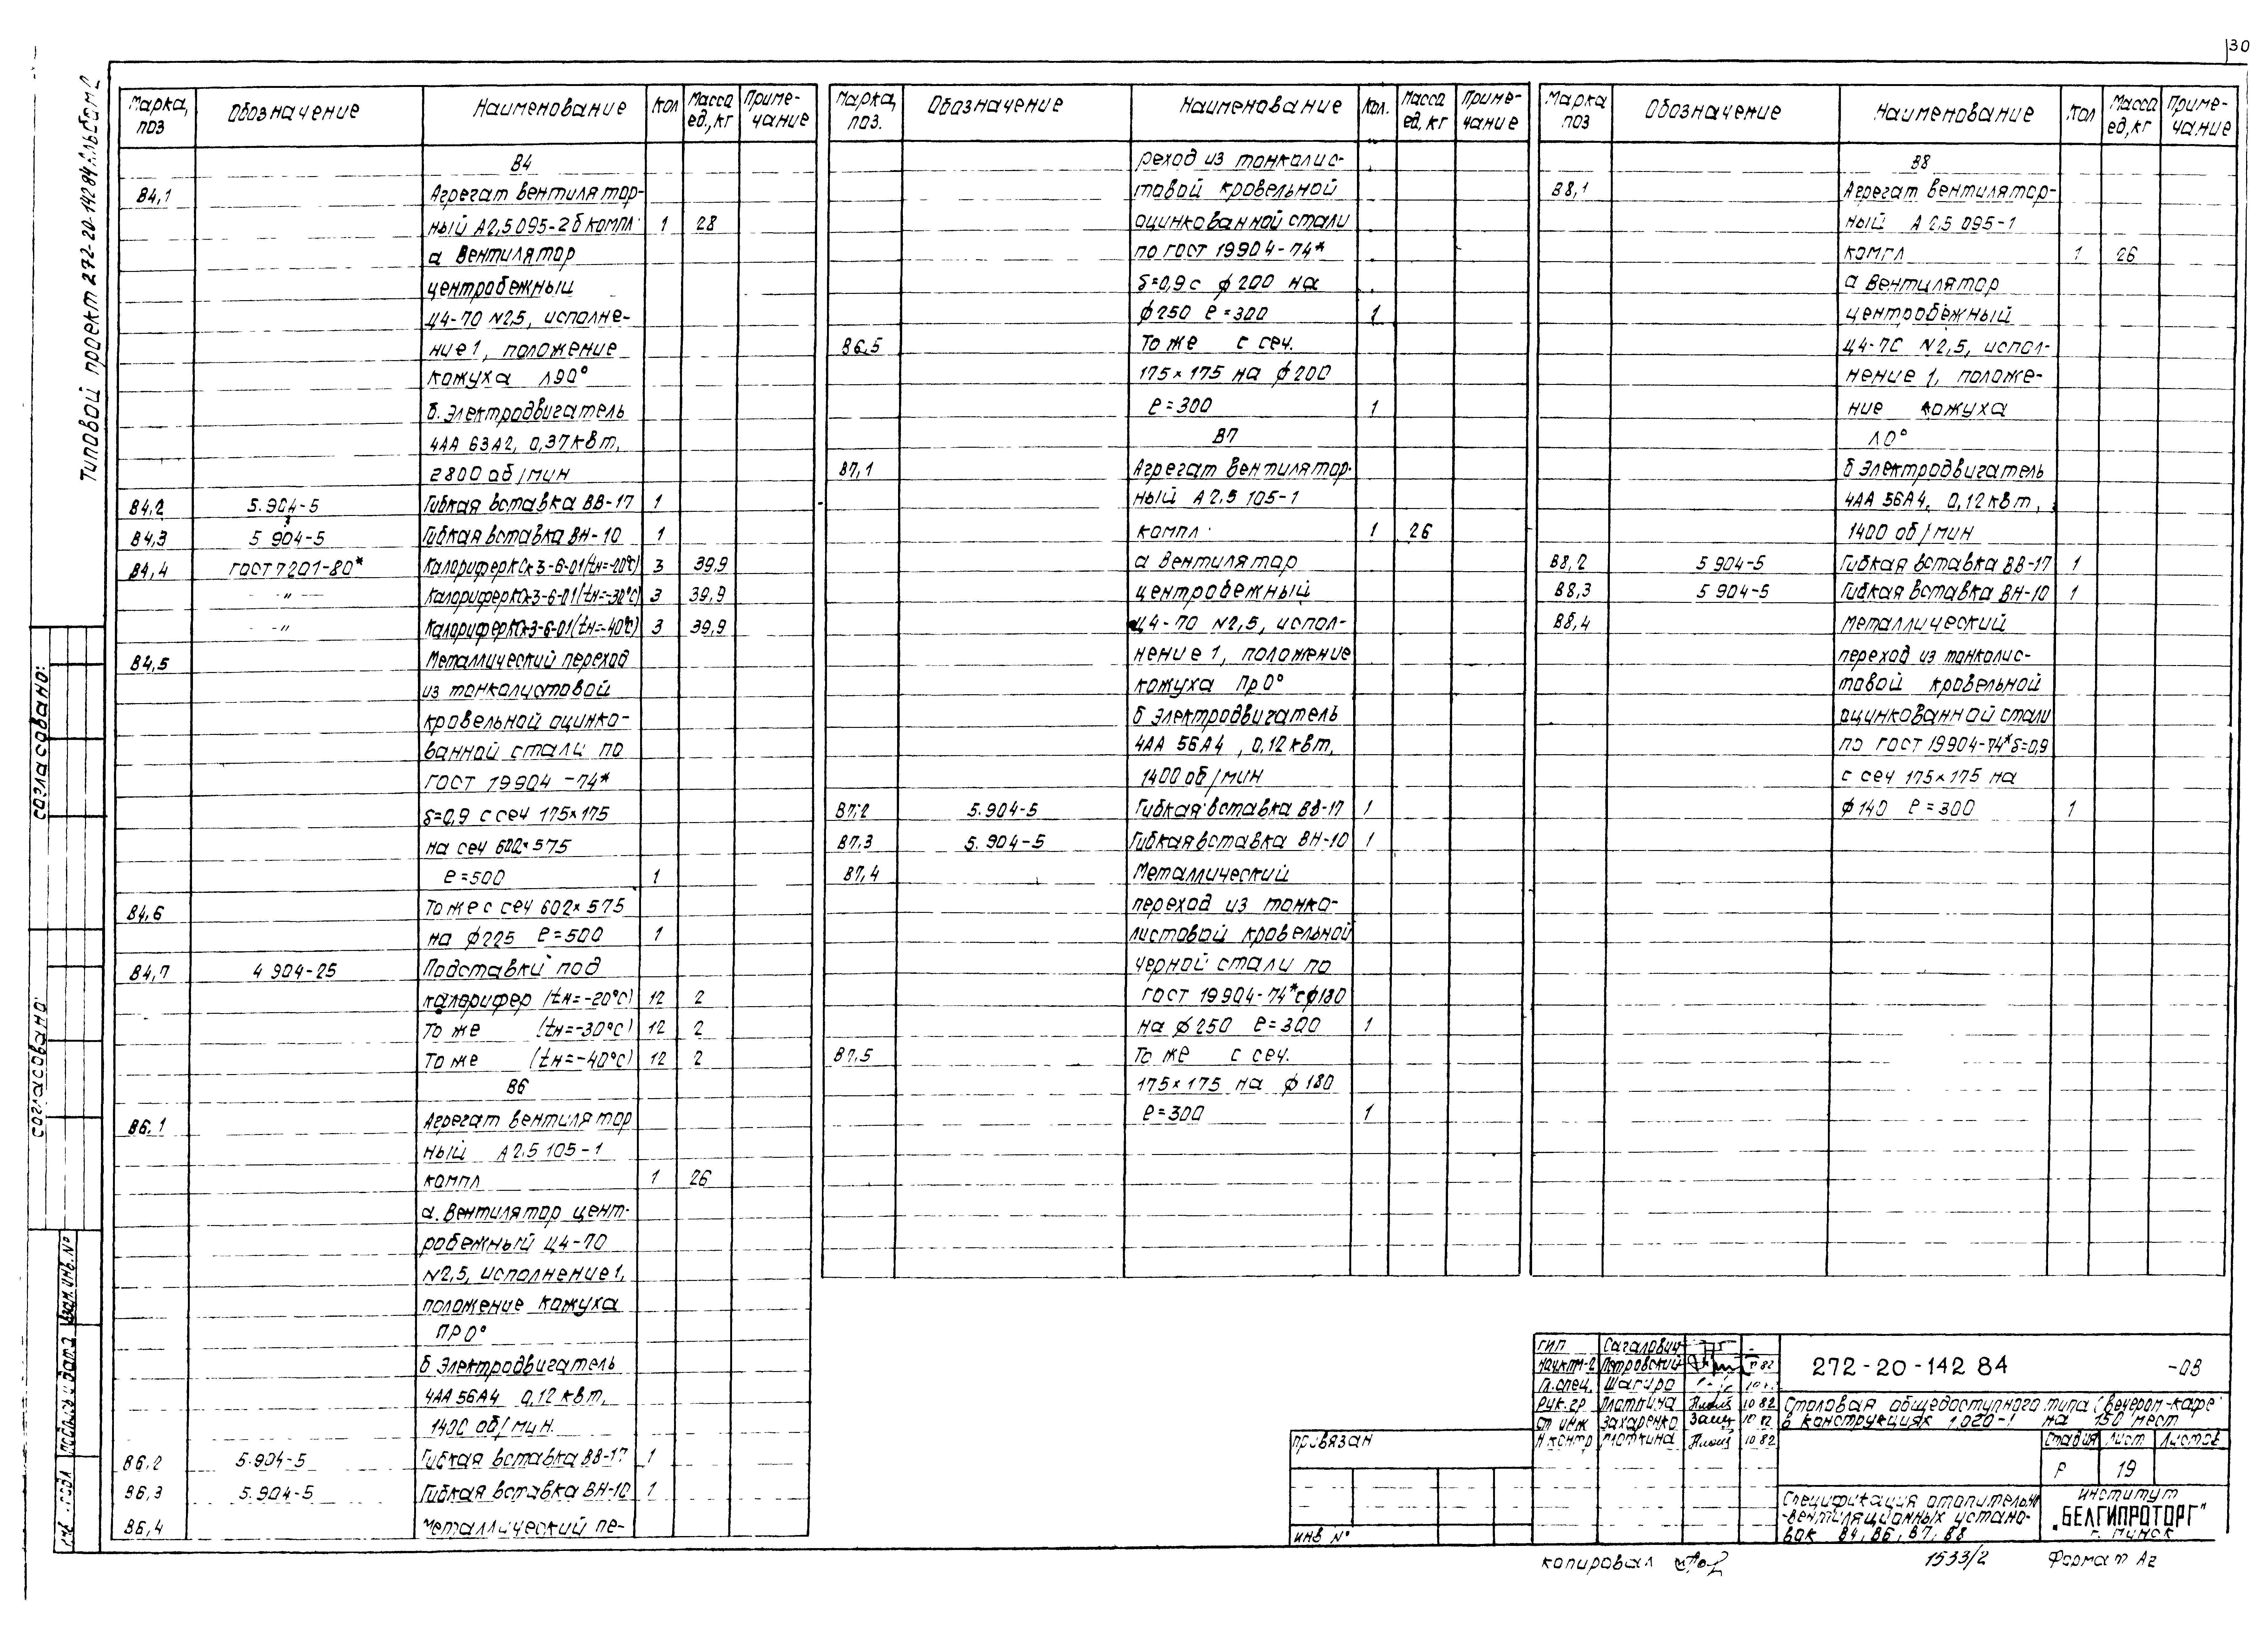 30
Типовой проект 272-20-142 84 Альбом 2
Марка, поз Обозначение Наименование Кол Масса ед,кг Приме-чание
В4
В4,1 Агрегат вентилятор-
ный А2,5 095-2б компл 1 28
а Вентилятор
центробежный
Ц4-70 N2,5, исполне-
ние 1, положение
кожуха Л90°
б. Электродвигатель
4АА 63А2, 0,37 квт,
2800 об/мин
В4,2 5.904-5 Гибкая вставка ВВ-17 1
В4,3 5 904-5 Гибкая вставка ВН-10 1
В4,4 ГОСТ 7201-80* Калорифер КСк 3-6-01 (tн=-20°С) 3 39,9
-"- Калорифер КСк3-6-01 (tн=-30°С) 3 39,9
-"- Калорифер КСк3-6-01 (tн=-40°С) 3 39,9
В4,5 Металлический переход
из тонколистовой
кровельной оцинко-
ванной стали по
ГОСТ 19904-74*
δ=0,9 с сеч 175×175
на сеч 602×575
ℓ=500 1
В4,6 То же с сеч 602×575
на ф225 ℓ=500 1
В4,7 4 904-25 Подставки под
калорифер (tн=-20°С) 12 2
То же (tн=-30°С) 12 2
То же (tн=-40°С) 12 2
В6
В6.1 Агрегат вентилятор
ный А2.5 105-1
компл 1 26
а. Вентилятор цент-
робежный Ц4-70
N2,5, исполнение 1,
положение кожуха
ПР0°
б Электродвигатель
4АА 56А4 0,12 квт,
1400 об/мин.
В6.2 5.904-5 Гибкая вставка ВВ-17 1
В6,3 5.904-5 Гибкая вставка ВН-10 1
В6,4 Металлический пе-
Марка, поз. Обозначение Наименование Кол. Масса ед,кг Приме-чание
реход из тонколис-
товой кровельной
оцинкованной стали
по ГОСТ 19904-74*
δ=0,9 с ф200 на
ф250 ℓ=300 1
В6,5 То же с сеч.
175×175 на ф200
ℓ=300 1
В7
В7,1 Агрегат вентилятор-
ный А2,5 105-1
компл 1 26
а вентилятор
центробежный
Ц4-70 N2,5, испол-
нение 1, положение
кожуха Пр0°
б электродвигатель
4АА 56А4, 0,12 квт,
1400 об/мин
В7,2 5.904-5 Гибкая вставка ВВ-17 1
В7,3 5.904-5 Гибкая вставка ВН-10 1
В7,4 Металлический
переход из тонко-
листовой кровельной
черной стали по
ГОСТ 19904-74* с ф180
на ф250 ℓ=300 1
В7,5 То же с сеч.
175×175 на ф180
ℓ=300 1
Марка поз Обозначение Наименование Кол Масса ед,кг Приме-чание
В8
В8,1 Агрегат вентилятор-
ный А 2.5 095-1
компл 1 26
а Вентилятор
центробежный
Ц4-70 N2,5, испол-
нение 1, положе-
ние кожуха
Л0°
б Электродвигатель
4АА 56А4, 0,12 квт,
1400 об/мин
В8,2 5 904-5 Гибкая вставка ВВ-17 1
В8,3 5 904-5 Гибкая вставка ВН-10 1
В8,4 Металлический
переход из тонколис-
товой кровельной
оцинкованной стали
по ГОСТ 19904-74* δ=0,9
с сеч 175×175 на
ф140 ℓ=300 1
Согласовано:
Согласовано:
Взам. инв. №
Подпись и дата
Инв. № подл
Привязан
Инв №
ГИП Сагалович
Нач ктм-2 Петровский 82
Гл. спец. Шапиро
Рук. гр Плоткина 10 82
Ст инж Захаренко 10 82
Н контр Плоткина 10 82
272-20-142 84 -ОВ
Столовая общедоступного типа (вечером-кафе)
в конструкциях 1.020-1 на 150 мест
Стадия Лист Листов
Р 19
Спецификация отопительно
-вентиляционных устано-
вок В4, В6, В7, В8
Институт
"БЕЛГИПРОТОРГ"
г. Минск
Копировал 1533/2 Формат А2